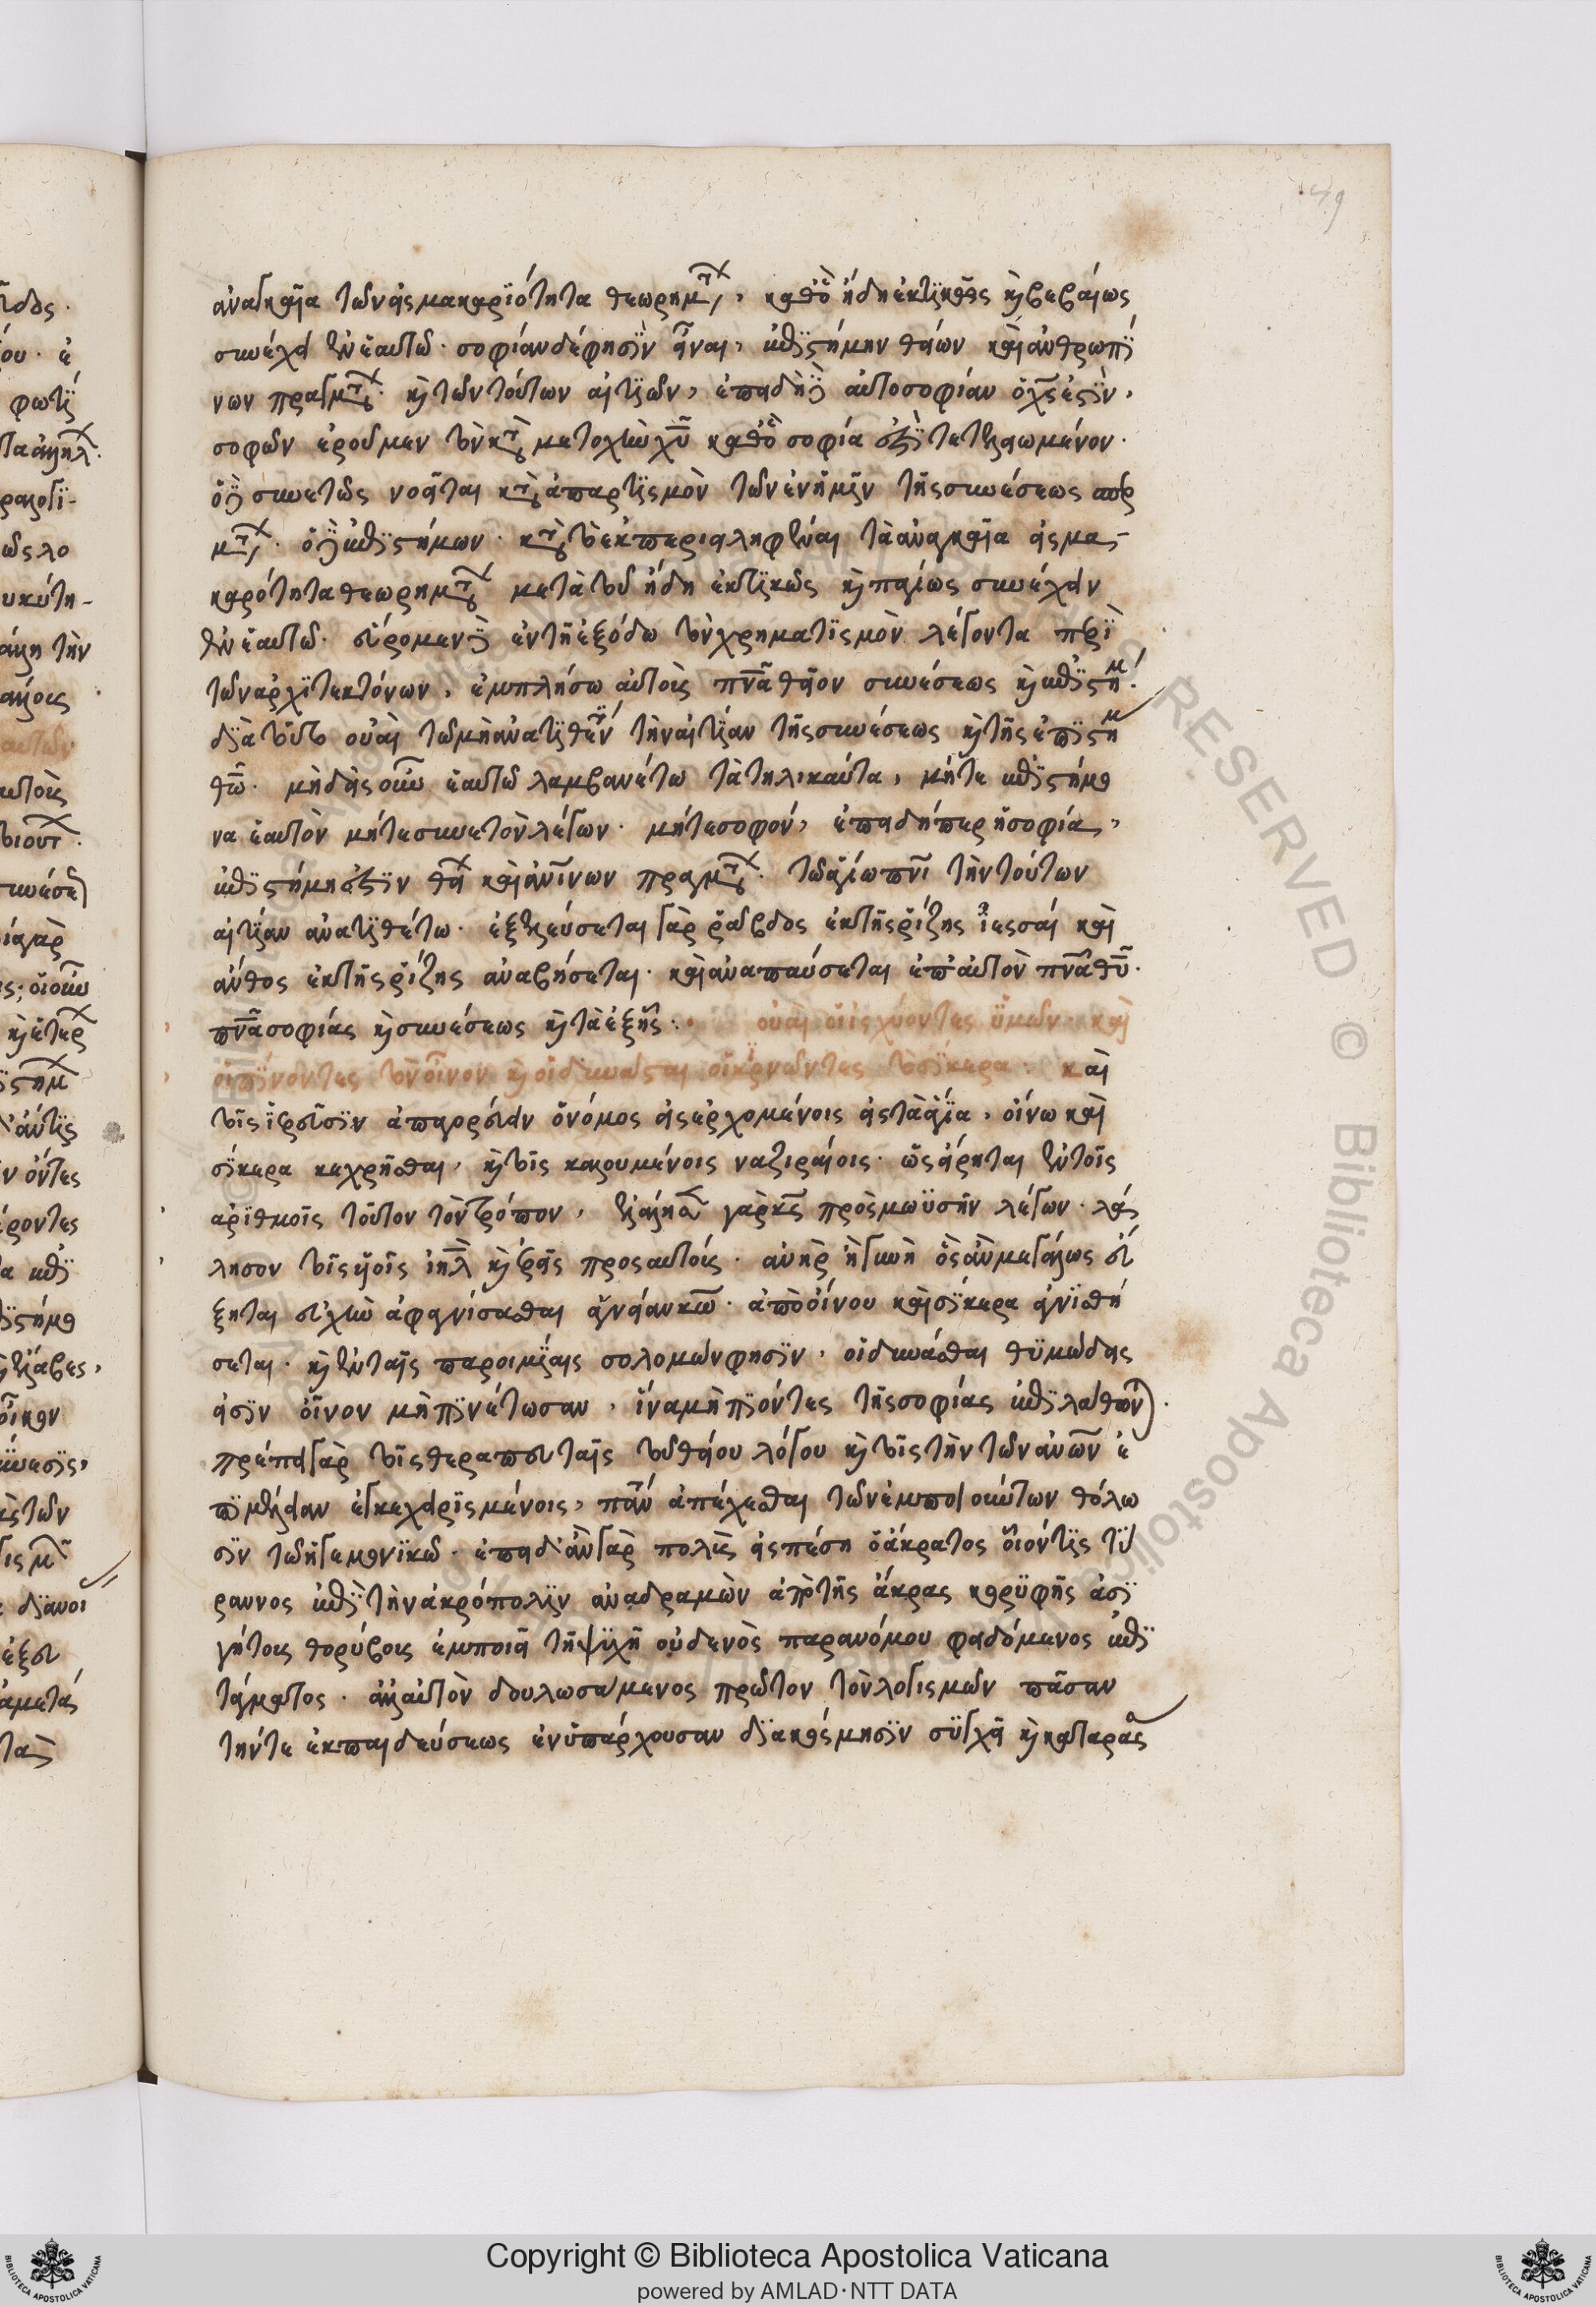 ἀναγκαῖα τῶν εἰς μακαριότητα θεωρημάτ, καθὸ ἤδη ἑκτικῶς κ βεβαίως
συνέχει ἐν ἑαυτῶ· σοφίαν δέ φησιν εἶναι, ἐπιστήμην θείων καὶ ἀνθρωπί
νων πραγμάτ· κ τῶν τούτων αἰτιῶν, ἐπειδὴ δὲ αὐτοσοφία ὁ χς ἐστὶν,
σοφὸν ἐροῦμεν τὸν κατὰ μετοχὴν χυ καθὸ σοφία ἐστὶ τετελειωμένον·
ὁ δὲ συνετὸς νοεῖται κατὰ ἀπαρτισμὸν τῶν ἐν ἡμῖν τῆς συνέσεως
μάτ· ὁ δὲ ἐπιστήμων· κατὰ τὸ ἐκπεριειληφέναι τὰ ἀναγκαῖα εἰς μα
καρότητα θεωρημάτ μετὰ τοῦ ἤδη ἑκτικῶς κ παγίως συνέχειν
ἐν ἑαυτῶ· εὕρομεν δὲ ἐν τῆ ἐξόδω τὸν χρηματισμὸν λέγοντα περὶ
τῶν ἀρχιτεκτόνων, ἐμπλήσω αὐτοὺς πνα θεῖον συνέσεως κ ἐπιστήμ·
διὰ τοῦτο οὐαὶ τῶ μὴ ἀνατιθέντι τὴν αἰτίαν τῆς συνέσεως κ τῆς ἐπιστήμ
θω· μηδεὶς οὖν ἑαυτῶ λαμβανέτω τὰ τηλικαῦτα, μήτε ἐπιστήμο
να ἑαυτὸν μήτε συνετὸν λέγων· μήτε σοφόν, ἐπειδήπερ ἡ σοφία,
ἐπιστήμη ἐστὶν θεί καὶ ἀνίνων πραγμάτ· τῶ ἁγίω πνι τὴν τούτων
αἰτίαν ἀνατιθέτω· ἐξελεύσεται γὰρ ῥάβδος ἐκ τῆς ῥίζης ἰεσσαὶ καὶ
ἄνθος ἐκ τῆς ῥίζης ἀναβήσεται· καὶ ἀναπαύσεται ἐπ' αὐτὸν πνα θυ·
πνα σοφίας κ συνέσεως κ τὰ ἑξῆς: οὐαὶ οἱ ἰσχύοντες ὑμῶν καὶ
οἱ πίνοντες τὸν οἶνον κ οἱ δυνάσται οἱ κιρνῶντες τὸ σίκερα· καὶ
τοῖς ἱερεῦσιν ἀπαγορεύειν ὁ νόμος εἰσερχομένοις εἰς τὰ ἅγια, οἴνω καὶ
σίκερα κεχρῆσθαι, κ τοῖς καλουμένοις ναζιραίοις· ὡς εἴρηται ἐν τοῖς
ἀριθμοῖς τοῦτον τὸν τρόπον, ἐλάλησε γὰρ κς πρὸς μωϋσῆν λέγων· λά
λησον τοῖς υἱοῖς ιηλ κ ἐρεῖς προς αὐτούς· ἀνὴρ ἢ γυνὴ ὃς ἂν μεγάλως εὔ
ξηται εὐχὴν ἀφαγνίσασθαι ἁγνείαν κω· ἀπὸ οἴνου καὶ σίκερα ἁγνισθή
σεται· κ ἐν ταῖς παροιμίαις σολομών φησιν, οἱ δυνάσθαι θυμώδεις
εἰσὶν οἶνον μὴ πινέτωσαν, ἵνα μὴ πιόντες τῆς σοφίας ἐπιλάθων·
πρέπει γὰρ τοῖς θεραπευταῖς τοῦ θείου λόγου κ τοῖς τὴν τῶν ἀνων ἐ
πιμέλειαν ἐγκεχειρισμένοις, παντ ἀπέχεσθαι τῶν ἐμποιούντων θόλω
σιν τῶ ἡγεμονικῶ· ἐπειδὰν γὰρ πολὺς εἰσπέση ὁ ἄκρατος οἱονεί τις τύ
ραννος ἐπὶ τὴν ἀκρόπολιν ἀναδραμὼν ἀπὸ τῆς ἄκρας κορυφῆς ἀσι
γήτους θορύβους ἐμποιεῖ τῆ ψυχῆ οὐδενὸς παρανόμου φειδόμενος ἐπι
τάγματος· ἀλλ' αὐτὸν δουλωσάμενος πρῶτον τὸν λογισμὸν πᾶσαν
τήν τε ἐκπαιδεύσεως ἐνυπάρχουσαν διακόσμησιν συγχεῖ κ καταράσ